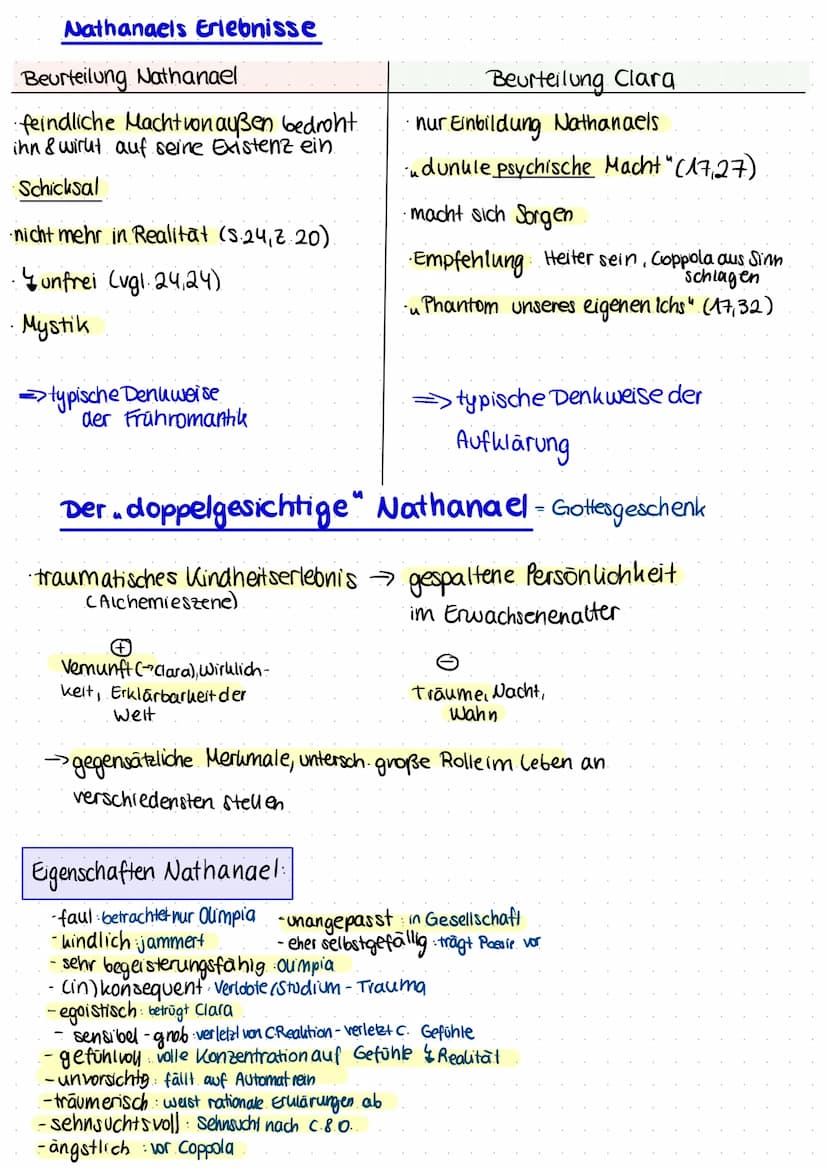 Nathanaels Erlebnisse
Beurteilung Nathanael
· feindliche Macht von außen bedroht
ihn & wirkt auf seine Existenz ein
· Schicksal
· nicht mehr in Realität (S.24, Z.20)
· ↯ unfrei (vgl. 24,24)
· Mystik
=> typische Denkweise
der Frühromantik
Beurteilung Clara
· nur Einbildung Nathanaels
· „dunkle psychische Macht" (17,27)
· macht sich Sorgen
· Empfehlung: Heiter sein, Coppola aus Sinn
schlagen
· „Phantom unseres eigenen Ichs" (17,32)
=> typische Denkweise der
Aufklärung
Der „doppelgesichtige" Nathanael = Gottesgeschenk
· traumatisches Kindheitserlebnis → gespaltene Persönlichkeit
(Alchemieszene) im Erwachsenenalter
⊕
Vernunft (→ Clara), Wirklich-
keit, Erklärbarkeit der
Welt
⊖
Träume, Nacht,
Wahn
→ gegensätzliche Merkmale, untersch. große Rolle im Leben an
verschiedensten Stellen
Eigenschaften Nathanael:
- faul: betrachtet nur Olimpia - unangepasst: in Gesellschaft
- kindlich: jammert - eher selbstgefällig: trägt Poesie vor
- sehr begeisterungsfähig: Olimpia
- (in)konsequent: Verlobte/Studium - Trauma
- egoistisch: betrügt Clara
- sensibel - grob: verletzt von C Reaktion - verletzt C. Gefühle
- gefühlvoll: volle Konzentration auf Gefühle ↯ Realität
- unvorsichtig: fällt auf Automat rein
- träumerisch: weist rationale Erklärungen ab
- sehnsuchtsvoll: Sehnsucht nach C. & O.
- ängstlich: vor Coppola